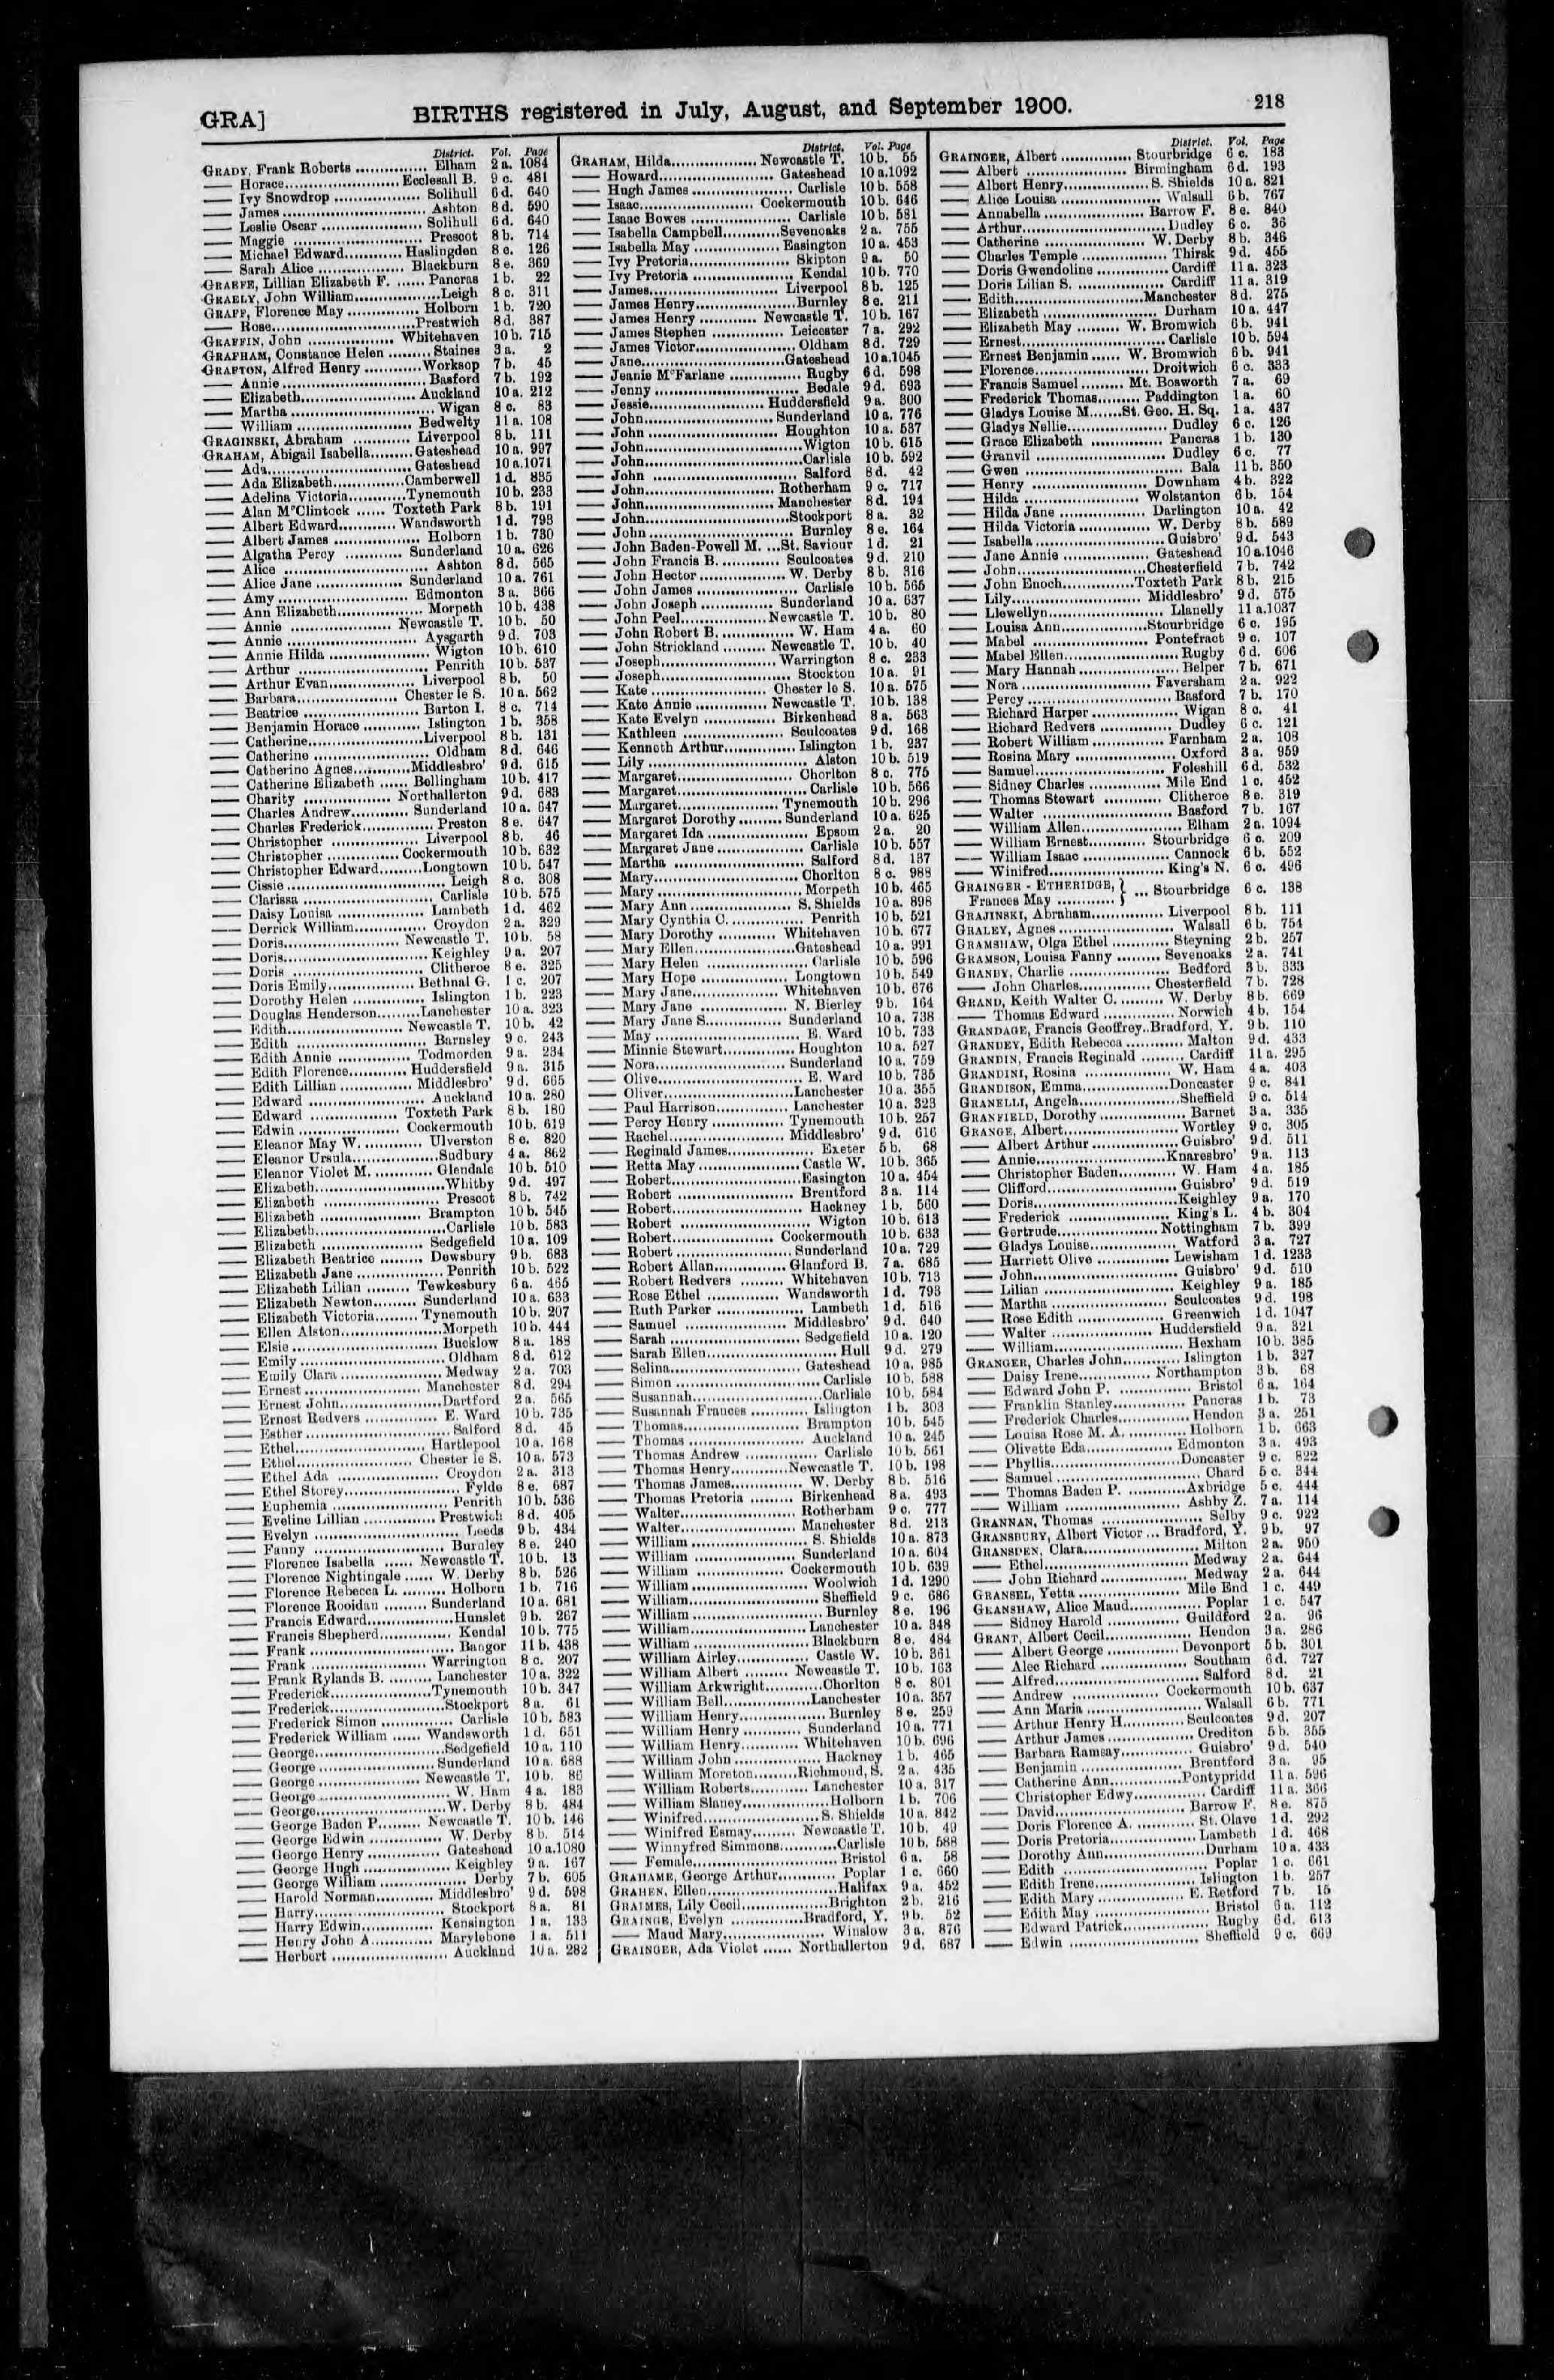 GRA] BIRTHS registered in July, August, and September 1900. 218
District. Vol. Page
GRADY, Frank Roberts .............. Elham 2 a. 1084
—— Horace....................... Ecclesall B. 9 c. 481
—— Ivy Snowdrop ................. Solihull 6 d. 640
—— James ............................. Ashton 8 d. 590
—— Leslie Oscar .................... Solihull 6 d. 640
—— Maggie .......................... Prescot 8 b. 714
—— Michael Edward............ Haslingden 8 e. 126
—— Sarah Alice ................. Blackburn 8 e. 369
GRAEFE, Lillian Elizabeth F. ...... Pancras 1 b. 22
GRAELY, John William.................Leigh 8 c. 311
GRAFF, Florence May ............... Holborn 1 b. 720
—— Rose.............................Prestwich 8 d. 387
GRAFFIN, John ................. Whitehaven 10 b. 715
GRAFHAM, Constance Helen ......... Staines 3 a. 2
GRAFTON, Alfred Henry ............Worksop 7 b. 45
—— Annie ............................. Basford 7 b. 192
—— Elizabeth....................... Auckland 10 a. 212
—— Martha ............................. Wigan 8 c. 83
—— William ....................... Bedwelty 11 a. 108
GRAGINSKI, Abraham ............ Liverpool 8 b. 111
GRAHAM, Abigail Isabella......... Gateshead 10 a. 997
—— Ada............................. Gateshead 10 a.1071
—— Ada Elizabeth..............Camberwell 1 d. 835
—— Adelina Victoria............Tynemouth 10 b. 233
—— Alan McClintock ...... Toxteth Park 8 b. 191
—— Albert Edward............ Wandsworth 1 d. 793
—— Albert James ................. Holborn 1 b. 730
—— Algatha Percy ............ Sunderland 10 a. 626
—— Alice ............................. Ashton 8 d. 565
—— Alice Jane ................. Sunderland 10 a. 761
—— Amy............................ Edmonton 3 a. 366
—— Ann Elizabeth................. Morpeth 10 b. 438
—— Annie .................... Newcastle T. 10 b. 50
—— Annie .......................... Aysgarth 9 d. 703
—— Annie Hilda .................... Wigton 10 b. 610
—— Arthur .......................... Penrith 10 b. 537
—— Arthur Evan................. Liverpool 8 b. 50
—— Barbara.................... Chester le S. 10 a. 562
—— Beatrice ....................... Barton I. 8 c. 714
—— Benjamin Horace ............ Islington 1 b. 358
—— Catherine.......................Liverpool 8 b. 131
—— Catherine ....................... Oldham 8 d. 646
—— Catherine Agnes............Middlesbro' 9 d. 615
—— Catherine Elizabeth ...... Bellingham 10 b. 417
—— Charity .................. Northallerton 9 d. 683
—— Charles Andrew............ Sunderland 10 a. 647
—— Charles Frederick............... Preston 8 e. 647
—— Christopher .................... Liverpool 8 b. 46
—— Christopher .............. Cockermouth 10 b. 632
—— Christopher Edward.........Longtown 10 b. 547
—— Cissie ................................ Leigh 8 c. 308
—— Clarissa .......................... Carlisle 10 b. 575
—— Daisy Louisa ................. Lambeth 1 d. 462
—— Derrick William.............. Croydon 2 a. 329
—— Doris....................... Newcastle T. 10 b. 58
—— Doris............................ Keighley 9 a. 207
—— Doris .......................... Clitheroe 8 e. 325
—— Doris Emily................. Bethnal G. 1 c. 207
—— Dorothy Helen .............. Islington 1 b. 223
—— Douglas Henderson.........Lanchester 10 a. 323
—— Edith....................... Newcastle T. 10 b. 42
—— Edith .......................... Barnsley 9 c. 243
—— Edith Annie .............. Todmorden 9 a. 234
—— Edith Florence............ Huddersfield 9 a. 315
—— Edith Lillian .............. Middlesbro' 9 d. 665
—— Edward ....................... Auckland 10 a. 280
—— Edward ................. Toxteth Park 8 b. 180
—— Edwin .................... Cockermouth 10 b. 619
—— Eleanor May W. ............ Ulverston 8 e. 820
—— Eleanor Ursula.................Sudbury 4 a. 862
—— Eleanor Violet M. ............ Glendale 10 b. 510
—— Elizabeth.......................... Whitby 9 d. 497
—— Elizabeth ....................... Prescot 8 b. 742
—— Elizabeth .................... Brampton 10 b. 545
—— Elizabeth.......................... Carlisle 10 b. 583
—— Elizabeth .................... Sedgefield 10 a. 109
—— Elizabeth Beatrice ......... Dewsbury 9 b. 683
—— Elizabeth Jane ................. Penrith 10 b. 522
—— Elizabeth Lilian ......... Tewkesbury 6 a. 465
—— Elizabeth Newton......... Sunderland 10 a. 633
—— Elizabeth Victoria......... Tynemouth 10 b. 207
—— Ellen Alston....................Morpeth 10 b. 444
—— Elsie ............................. Bucklow 8 a. 188
—— Emily ............................. Oldham 8 d. 612
—— Emily Clara .................... Medway 2 a. 703
—— Ernest ....................... Manchester 8 d. 294
—— Ernest John....................Dartford 2 a. 565
—— Ernest Redvers .............. E. Ward 10 b. 735
—— Esther ............................. Salford 8 d. 45
—— Ethel.......................... Hartlepool 10 a. 168
—— Ethel....................... Chester le S. 10 a. 573
—— Ethel Ada .................... Croydon 2 a. 313
—— Ethel Storey....................... Fylde 8 e. 687
—— Euphemia ....................... Penrith 10 b. 536
—— Eveline Lillian .............. Prestwich 8 d. 405
—— Evelyn ............................. Leeds 9 b. 434
—— Fanny .......................... Burnley 8 e. 240
—— Florence Isabella ...... Newcastle T. 10 b. 13
—— Florence Nightingale ...... W. Derby 8 b. 526
—— Florence Rebecca L. ......... Holborn 1 b. 716
—— Florence Rooidan ......... Sunderland 10 a. 681
—— Francis Edward.................Hunslet 9 b. 267
—— Francis Shepherd.............. Kendal 10 b. 775
—— Frank ............................. Bangor 11 b. 438
—— Frank ....................... Warrington 8 c. 207
—— Frank Rylands B. ......... Lanchester 10 a. 322
—— Frederick....................Tynemouth 10 b. 347
—— Frederick.......................Stockport 8 a. 61
—— Frederick Simon .............. Carlisle 10 b. 583
—— Frederick William ...... Wandsworth 1 d. 651
—— George..........................Sedgefield 10 a. 110
—— George ....................... Sunderland 10 a. 688
—— George .................... Newcastle T. 10 b. 86
—— George .......................... W. Ham 4 a. 183
—— George..........................W. Derby 8 b. 484
—— George Baden P......... Newcastle T. 10 b. 146
—— George Edwin .............. W. Derby 8 b. 514
—— George Henry .............. Gateshead 10 a.1080
—— George Hugh ................. Keighley 9 a. 167
—— George William ................. Derby 7 b. 605
—— Harold Norman............ Middlesbro' 9 d. 598
—— Harry.......................... Stockport 8 a. 81
—— Harry Edwin.............. Kensington 1 a. 133
—— Henry John A............ Marylebone 1 a. 511
—— Herbert ....................... Auckland 10 a. 282
District. Vol. Page
GRAHAM, Hilda................. Newcastle T. 10 b. 55
—— Howard....................... Gateshead 10 a.1092
—— Hugh James .................... Carlisle 10 b. 558
—— Isaac....................... Cockermouth 10 b. 646
—— Isaac Bowes .................... Carlisle 10 b. 581
—— Isabella Campbell............Sevenoaks 2 a. 755
—— Isabella May ................. Easington 10 a. 453
—— Ivy Pretoria.................... Skipton 9 a. 50
—— Ivy Pretoria .................... Kendal 10 b. 770
—— James.......................... Liverpool 8 b. 125
—— James Henry....................Burnley 8 e. 211
—— James Henry ............ Newcastle T. 10 b. 167
—— James Stephen .............. Leicester 7 a. 292
—— James Victor.................... Oldham 8 d. 729
—— Jane.............................Gateshead 10 a.1045
—— Jeanie McFarlane .............. Rugby 6 d. 598
—— Jenny ............................. Bedale 9 d. 693
—— Jessie....................... Huddersfield 9 a. 300
—— John.......................... Sunderland 10 a. 776
—— John .......................... Houghton 10 a. 537
—— John................................ Wigton 10 b. 615
—— John................................Carlisle 10 b. 592
—— John ............................. Salford 8 d. 42
—— John.......................... Rotherham 9 c. 717
—— John.......................... Manchester 8 d. 194
—— John.............................Stockport 8 a. 32
—— John ............................. Burnley 8 e. 164
—— John Baden-Powell M. ...St. Saviour 1 d. 21
—— John Francis B............. Sculcoates 9 d. 210
—— John Hector ................. W. Derby 8 b. 316
—— John James .................... Carlisle 10 b. 565
—— John Joseph .............. Sunderland 10 a. 637
—— John Peel.................Newcastle T. 10 b. 80
—— John Robert B............... W. Ham 4 a. 60
—— John Strickland ......... Newcastle T. 10 b. 40
—— Joseph....................... Warrington 8 c. 233
—— Joseph.......................... Stockton 10 a. 91
—— Kate ....................... Chester le S. 10 a. 575
—— Kate Annie .............. Newcastle T. 10 b. 138
—— Kate Evelyn .............. Birkenhead 8 a. 563
—— Kathleen .................... Sculcoates 9 d. 168
—— Kenneth Arthur.............. Islington 1 b. 237
—— Lily ................................ Alston 10 b. 519
—— Margaret....................... Chorlton 8 c. 775
—— Margaret.......................... Carlisle 10 b. 566
—— Margaret.................... Tynemouth 10 b. 296
—— Margaret Dorothy......... Sunderland 10 a. 625
—— Margaret Ida .................... Epsom 2 a. 20
—— Margaret Jane ................. Carlisle 10 b. 557
—— Martha .......................... Salford 8 d. 137
—— Mary............................. Chorlton 8 c. 988
—— Mary ............................. Morpeth 10 b. 465
—— Mary Ann .................... S. Shields 10 a. 898
—— Mary Cynthia C. .............. Penrith 10 b. 521
—— Mary Dorothy ............ Whitehaven 10 b. 677
—— Mary Ellen....................Gateshead 10 a. 991
—— Mary Helen .................... Carlisle 10 b. 596
—— Mary Hope ................. Longtown 10 b. 549
—— Mary Jane................. Whitehaven 10 b. 676
—— Mary Jane ................. N. Bierley 9 b. 164
—— Mary Jane S.............. Sunderland 10 a. 738
—— May ............................. E. Ward 10 b. 733
—— Minnie Stewart.............. Houghton 10 a. 527
—— Nora.......................... Sunderland 10 a. 759
—— Olive............................. E. Ward 10 b. 735
—— Oliver.......................... Lanchester 10 a. 355
—— Paul Harrison.............. Lanchester 10 a. 323
—— Percy Henry .............. Tynemouth 10 b. 257
—— Rachel....................... Middlesbro' 9 d. 616
—— Reginald James................. Exeter 5 b. 68
—— Retta May .................... Castle W. 10 b. 365
—— Robert..........................Easington 10 a. 454
—— Robert ....................... Brentford 3 a. 114
—— Robert.......................... Hackney 1 b. 560
—— Robert .......................... Wigton 10 b. 613
—— Robert.................... Cockermouth 10 b. 633
—— Robert ....................... Sunderland 10 a. 729
—— Robert Allan.............. Glanford B. 7 a. 685
—— Robert Redvers ......... Whitehaven 10 b. 713
—— Rose Ethel .............. Wandsworth 1 d. 793
—— Ruth Parker ................. Lambeth 1 d. 516
—— Samuel .................... Middlesbro' 9 d. 640
—— Sarah ....................... Sedgefield 10 a. 120
—— Sarah Ellen....................... Hull 9 d. 279
—— Selina.......................... Gateshead 10 a. 985
—— Simon ............................. Carlisle 10 b. 588
—— Susannah..........................Carlisle 10 b. 584
—— Susannah Frances ............ Islington 1 b. 303
—— Thomas....................... Brampton 10 b. 545
—— Thomas ....................... Auckland 10 a. 245
—— Thomas Andrew .............. Carlisle 10 b. 561
—— Thomas Henry............Newcastle T. 10 b. 198
—— Thomas James.............. W. Derby 8 b. 516
—— Thomas Pretoria ......... Birkenhead 8 a. 493
—— Walter....................... Rotherham 9 c. 777
—— Walter....................... Manchester 8 d. 213
—— William ....................... S. Shields 10 a. 873
—— William .................... Sunderland 10 a. 604
—— William ................. Cockermouth 10 b. 639
—— William ....................... Woolwich 1 d. 1290
—— William.......................... Sheffield 9 c. 686
—— William .......................... Burnley 8 e. 196
—— William....................... Lanchester 10 a. 348
—— William ....................... Blackburn 8 e. 484
—— William Airley.............. Castle W. 10 b. 361
—— William Albert ......... Newcastle T. 10 b. 163
—— William Arkwright............Chorlton 8 c. 801
—— William Bell.................Lanchester 10 a. 357
—— William Henry................. Burnley 8 e. 259
—— William Henry ............ Sunderland 10 a. 771
—— William Henry............ Whitehaven 10 b. 696
—— William John ................. Hackney 1 b. 465
—— William Moreton.........Richmond, S. 2 a. 435
—— William Roberts............ Lanchester 10 a. 317
—— William Slaney.................Holborn 1 b. 706
—— Winifred....................... S. Shields 10 a. 842
—— Winifred Esmay......... Newcastle T. 10 b. 49
—— Winnyfred Simmons............Carlisle 10 b. 588
—— Female............................. Bristol 6 a. 58
GRAHAME, George Arthur............ Poplar 1 c. 660
GRAHEN, Ellen..........................Halifax 9 a. 452
GRAIMES, Lily Cecil.................Brighton 2 b. 216
GRAINGE, Evelyn ..............Bradford, Y. 9 b. 52
—— Maud Mary.................... Winslow 3 a. 876
GRAINGER, Ada Violet ...... Northallerton 9 d. 687
District. Vol. Page
GRAINGER, Albert .............. Stourbridge 6 c. 183
—— Albert .................... Birmingham 6 d. 193
—— Albert Henry................. S. Shields 10 a. 821
—— Alice Louisa .................... Walsall 6 b. 767
—— Annabella .................... Barrow F. 8 e. 840
—— Arthur.............................Dudley 6 c. 36
—— Catherine .................... W. Derby 8 b. 346
—— Charles Temple ................. Thirsk 9 d. 455
—— Doris Gwendoline .............. Cardiff 11 a. 323
—— Doris Lilian S. ................. Cardiff 11 a. 319
—— Edith..........................Manchester 8 d. 275
—— Elizabeth ....................... Durham 10 a. 447
—— Elizabeth May ......... W. Bromwich 6 b. 941
—— Ernest............................. Carlisle 10 b. 594
—— Ernest Benjamin...... W. Bromwich 6 b. 941
—— Florence....................... Droitwich 6 c. 333
—— Francis Samuel ......... Mt. Bosworth 7 a. 69
—— Frederick Thomas......... Paddington 1 a. 60
—— Gladys Louise M.......St. Geo. H. Sq. 1 a. 437
—— Gladys Nellie.................... Dudley 6 c. 126
—— Grace Elizabeth .............. Pancras 1 b. 130
—— Granvil .......................... Dudley 6 c. 77
—— Gwen ................................ Bala 11 b. 350
—— Henry ....................... Downham 4 b. 322
—— Hilda .................... Wolstanton 6 b. 154
—— Hilda Jane ................. Darlington 10 a. 42
—— Hilda Victoria .............. W. Derby 8 b. 589
—— Isabella .......................... Guisbro' 9 d. 543
—— Jane Annie ................. Gateshead 10 a.1046
—— John..........................Chesterfield 7 b. 742
—— John Enoch..............Toxteth Park 8 b. 215
—— Lily .......................... Middlesbro' 9 d. 575
—— Llewellyn....................... Llanelly 11 a.1037
—— Louisa Ann.................Stourbridge 6 c. 195
—— Mabel ....................... Pontefract 9 c. 107
—— Mabel Ellen....................... Rugby 6 d. 606
—— Mary Hannah.................... Belper 7 b. 671
—— Nora .......................... Faversham 2 a. 922
—— Percy ............................. Basford 7 b. 170
—— Richard Harper ................. Wigan 8 c. 41
—— Richard Redvers .............. Dudley 6 c. 121
—— Robert William .............. Farnham 2 a. 108
—— Rosina Mary .................... Oxford 3 a. 959
—— Samuel.......................... Foleshill 6 d. 532
—— Sidney Charles .............. Mile End 1 c. 452
—— Thomas Stewart ............ Clitheroe 8 e. 319
—— Walter .......................... Basford 7 b. 167
—— William Allen.................... Elham 2 a. 1094
—— William Ernest............ Stourbridge 6 c. 209
—— William Isaac ................. Cannock 6 b. 552
—— Winifred....................... King's N. 6 c. 496
GRAINGER - ETHERIDGE, } ... Stourbridge 6 c. 138
Frances May ............ }
GRAJINSKI, Abraham.............. Liverpool 8 b. 111
GRALEY, Agnes ....................... Walsall 6 b. 754
GRAMSHAW, Olga Ethel ............ Steyning 2 b. 257
GRAMSON, Louisa Fanny ......... Sevenoaks 2 a. 741
GRANBY, Charlie .................... Bedford 3 b. 333
—— John Charles.............. Chesterfield 7 b. 728
GRAND, Keith Walter C. ......... W. Derby 8 b. 669
—— Thomas Edward .............. Norwich 4 b. 154
GRANDAGE, Francis Geoffrey..Bradford, Y. 9 b. 110
GRANDEY, Edith Rebecca ............ Malton 9 d. 433
GRANDIN, Francis Reginald ......... Cardiff 11 a. 295
GRANDINI, Rosina ................. W. Ham 4 a. 403
GRANDISON, Emma.................Doncaster 9 c. 841
GRANELLI, Angela....................Sheffield 9 c. 514
GRANFIELD, Dorothy ................. Barnet 3 a. 335
GRANGE, Albert....................... Wortley 9 c. 305
—— Albert Arthur ................. Guisbro' 9 d. 511
—— Annie..........................Knaresbro' 9 a. 113
—— Christopher Baden............ W. Ham 4 a. 185
—— Clifford.......................... Guisbro' 9 d. 519
—— Doris.............................Keighley 9 a. 170
—— Frederick .................... King's L. 4 b. 304
—— Gertrude.................... Nottingham 7 b. 399
—— Gladys Louise................. Watford 3 a. 727
—— Harriett Olive .............. Lewisham 1 d. 1233
—— John............................. Guisbro' 9 d. 510
—— Lilian .......................... Keighley 9 a. 185
—— Martha ....................... Sculcoates 9 d. 198
—— Rose Edith ................. Greenwich 1 d. 1047
—— Walter .................... Huddersfield 9 a. 321
—— William.......................... Hexham 10 b. 385
GRANGER, Charles John............ Islington 1 b. 327
—— Daisy Irene.............. Northampton 3 b. 68
—— Edward John P. .............. Bristol 6 a. 164
—— Franklin Stanley.............. Pancras 1 b. 73
—— Frederick Charles.............. Hendon 3 a. 251
—— Louisa Rose M. A. ............ Holborn 1 b. 663
—— Olivette Eda................. Edmonton 3 a. 493
—— Phyllis.......................Doncaster 9 c. 822
—— Samuel ............................. Chard 5 c. 344
—— Thomas Baden P. ............Axbridge 5 c. 444
—— William ....................... Ashby Z. 7 a. 114
GRANNAN, Thomas .................... Selby 9 c. 922
GRANSBURY, Albert Victor ... Bradford, Y. 9 b. 97
GRANSDEN, Clara....................... Milton 2 a. 950
—— Ethel............................. Medway 2 a. 644
—— John Richard ................. Medway 2 a. 644
GRANSEL, Yetta .................... Mile End 1 c. 449
GRANSHAW, Alice Maud.............. Poplar 1 c. 547
—— Sidney Harold .............. Guildford 2 a. 96
GRANT, Albert Cecil................. Hendon 3 a. 286
—— Albert George .............. Devonport 5 b. 301
—— Alec Richard ................. Southam 6 d. 727
—— Alfred............................. Salford 8 d. 21
—— Andrew ................. Cockermouth 10 b. 637
—— Ann Maria ....................... Walsall 6 b. 771
—— Arthur Henry H............ Sculcoates 9 d. 207
—— Arthur James ................. Crediton 5 b. 355
—— Barbara Ramsay.............. Guisbro' 9 d. 540
—— Benjamin .................... Brentford 3 a. 95
—— Catherine Ann..............Pontypridd 11 a. 596
—— Christopher Edwy.............. Cardiff 11 a. 366
—— David.......................... Barrow F. 8 e. 875
—— Doris Florence A. ............ St. Olave 1 d. 292
—— Doris Pretoria................. Lambeth 1 d. 468
—— Dorothy Ann....................Durham 10 a. 433
—— Edith ............................. Poplar 1 c. 661
—— Edith Irene.................... Islington 1 b. 257
—— Edith Mary ................. E. Retford 7 b. 15
—— Edith May ....................... Bristol 6 a. 112
—— Edward Patrick................. Rugby 6 d. 613
—— Edwin .......................... Sheffield 9 c. 669